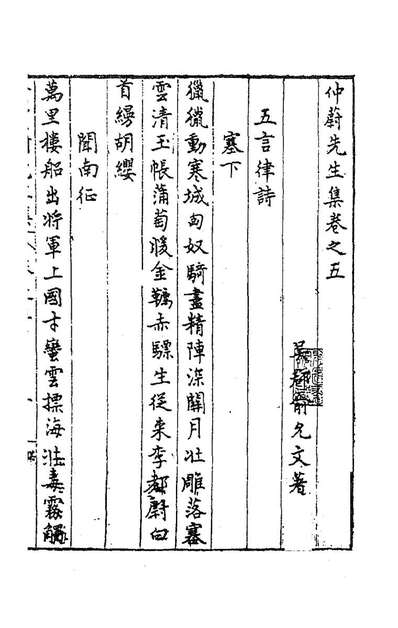 仲蔚先生集卷之五
吳郡俞允文著
五言律詩
塞下
獵獵動寒城匈奴騎盡精陣深關月壯雕落塞
雲清玉帳蒲萄暖金韉赤驃生從来李都尉白
首縵胡纓
聞南征
萬里樓船出將軍上國才蠻雲摽海壯毒霧觸